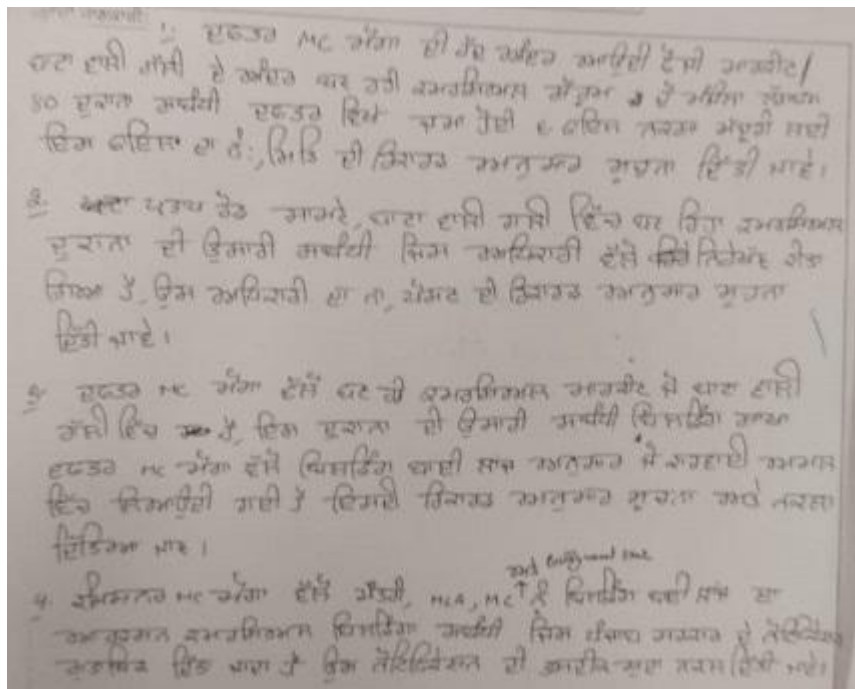 1. ਦਫਤਰ MC ਮੋਗਾ ਦੀ ਹੱਦ ਅੰਦਰ ਆਉਂਦੀ ਟੈਕਸੀ ਮਾਰਕੀਟ/
ਬਾਟਾ ਵਾਲੀ ਗਲੀ ਦੇ ਅੰਦਰ ਬਣ ਰਹੀ ਕਮਰਸ਼ਿਅਲ
80 ਦੁਕਾਨਾ ਸਬੰਧੀ ਦਫਤਰ ਵਿਖੇ ਜਮਾ ਹੋਈ ਫਾਇਲ ਨਕਸ਼ਾ ਮੰਜੂਰੀ ਲਈ
ਇਸ ਫਾਇਲ ਦਾ ਨੰ:, ਮਿਤੀ ਦੀ ਰਿਕਾਰਡ ਅਨੁਸਾਰ ਸੂਚਨਾ ਦਿੱਤੀ ਜਾਵੇ।
2. ਪਰਤਾਪ ਰੋਡ ਸਾਮਣੇ, ਬਾਟਾ ਵਾਲੀ ਗਲੀ ਵਿੱਚ ਬਣ ਰਿਹਾ ਕਮਰਸ਼ਿਅਲ
ਦੁਕਾਨਾ ਦੀ ਉਸਾਰੀ ਸਬੰਧੀ ਜਿਸ ਅਧਿਕਾਰੀ ਵੱਲੋਂ ਨਿਰੀਖਣ ਕੀਤਾ
ਗਿਆ ਹੈ, ਉਸ ਅਧਿਕਾਰੀ ਦਾ ਨਾ, ਪੋਸਟ ਦੀ ਰਿਕਾਰਡ ਅਨੁਸਾਰ ਸੂਚਨਾ
ਦਿੱਤੀ ਜਾਵੇ।
3. ਦਫਤਰ MC ਮੋਗਾ ਵੱਲੋਂ ਬਣ ਰਹੀ ਕਮਰਸ਼ਿਅਲ ਮਾਰਕੀਟ ਜੋ ਬਾਟਾ ਵਾਲੀ
ਗਲੀ ਵਿੱਚ ਹੈ, ਇਸ ਦੁਕਾਨਾ ਦੀ ਉਸਾਰੀ ਸਬੰਧੀ ਬਿਲਡਿੰਗ ਸ਼ਾਖਾ
ਦਫਤਰ MC ਮੋਗਾ ਵੱਲੋਂ ਬਿਲਡਿੰਗ ਬਾਈ ਲਾਜ ਅਨੁਸਾਰ ਜੋ ਕਾਰਵਾਈ ਅਮਲ
ਵਿੱਚ ਲਿਆਉਂਦੀ ਗਈ ਹੈ ਇਸਦੀ ਰਿਕਾਰਡ ਅਨੁਸਾਰ ਸੂਚਨਾ ਅਤੇ ਨਕਲਾ
ਦਿੱਤਿਆ ਜਾਣ।
and
4. ਕਮਿਸ਼ਨਰ MC ਮੋਗਾ ਵੱਲੋਂ ਮੰਤਰੀ, MLA, MC ਨੂੰ ਬਿਲਡਿੰਗ ਬਾਈ ਲਾਜ ਦਾ
ਕਮਰਸ਼ਿਅਲ ਬਿਲਡਿੰਗਾ ਸਬੰਧੀ ਜਿਸ ਪੰਜਾਬ ਸਰਕਾਰ ਦੇ ਨੋਟਿਫਿਕੇਸ਼ਨ
ਮੁਤਾਬਿਕ ਦਿੱਤਾ ਜਾਂਦਾ ਹੈ ਉਸ ਨੋਟਿਫਿਕੇਸ਼ਨ ਦੀ ਤਸਦੀਕ ਸ਼ੁਦਾ ਨਕਲ ਦਿੱਤੀ ਜਾਵੇ।